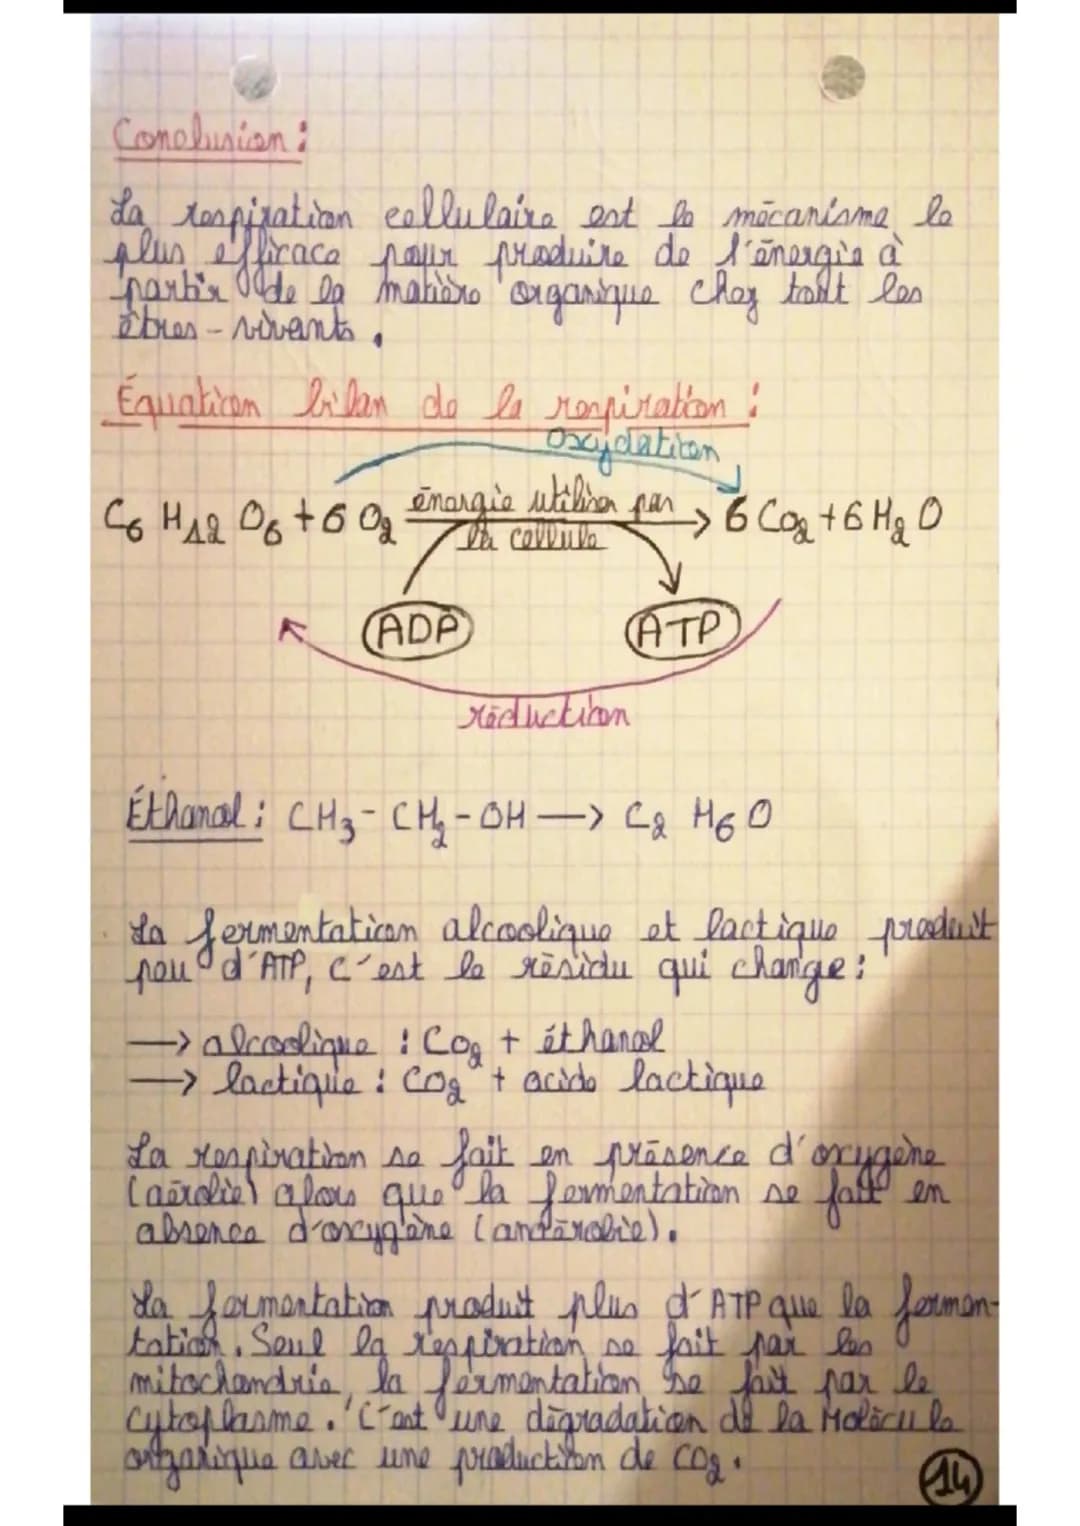 Conclusion :
La respiration cellulaire est le mécanisme le
plus efficace pour produire de l'énergie à
partir de la matière organique chez tout les
êtres-vivants.
Équation bilan de la respiration :
Oxydation
énergie utiliser par
C6 H12 O6 + 6 O2 → 6 CO2 + 6 H2 O
la cellule
ADP ATP
réduction
Éthanol : CH3 - CH2 - OH → C2 H6 O
La fermentation alcoolique et lactique produit
peu d'ATP, c'est le résidu qui change :
→ alcoolique : CO2 + éthanol
→ lactique : CO2 + acide lactique
La respiration se fait en présence d'oxygène
(aérobie) alors que la fermentation se fait en
absence d'oxygène (anaérobie).
La fermentation produit plus d'ATP que la fermen-
tation. Seul la respiration se fait par les
mitochondrie, la fermentation se fait par le
cytoplasme. C'est une dégradation de la molécule
organique avec une production de CO2.
14